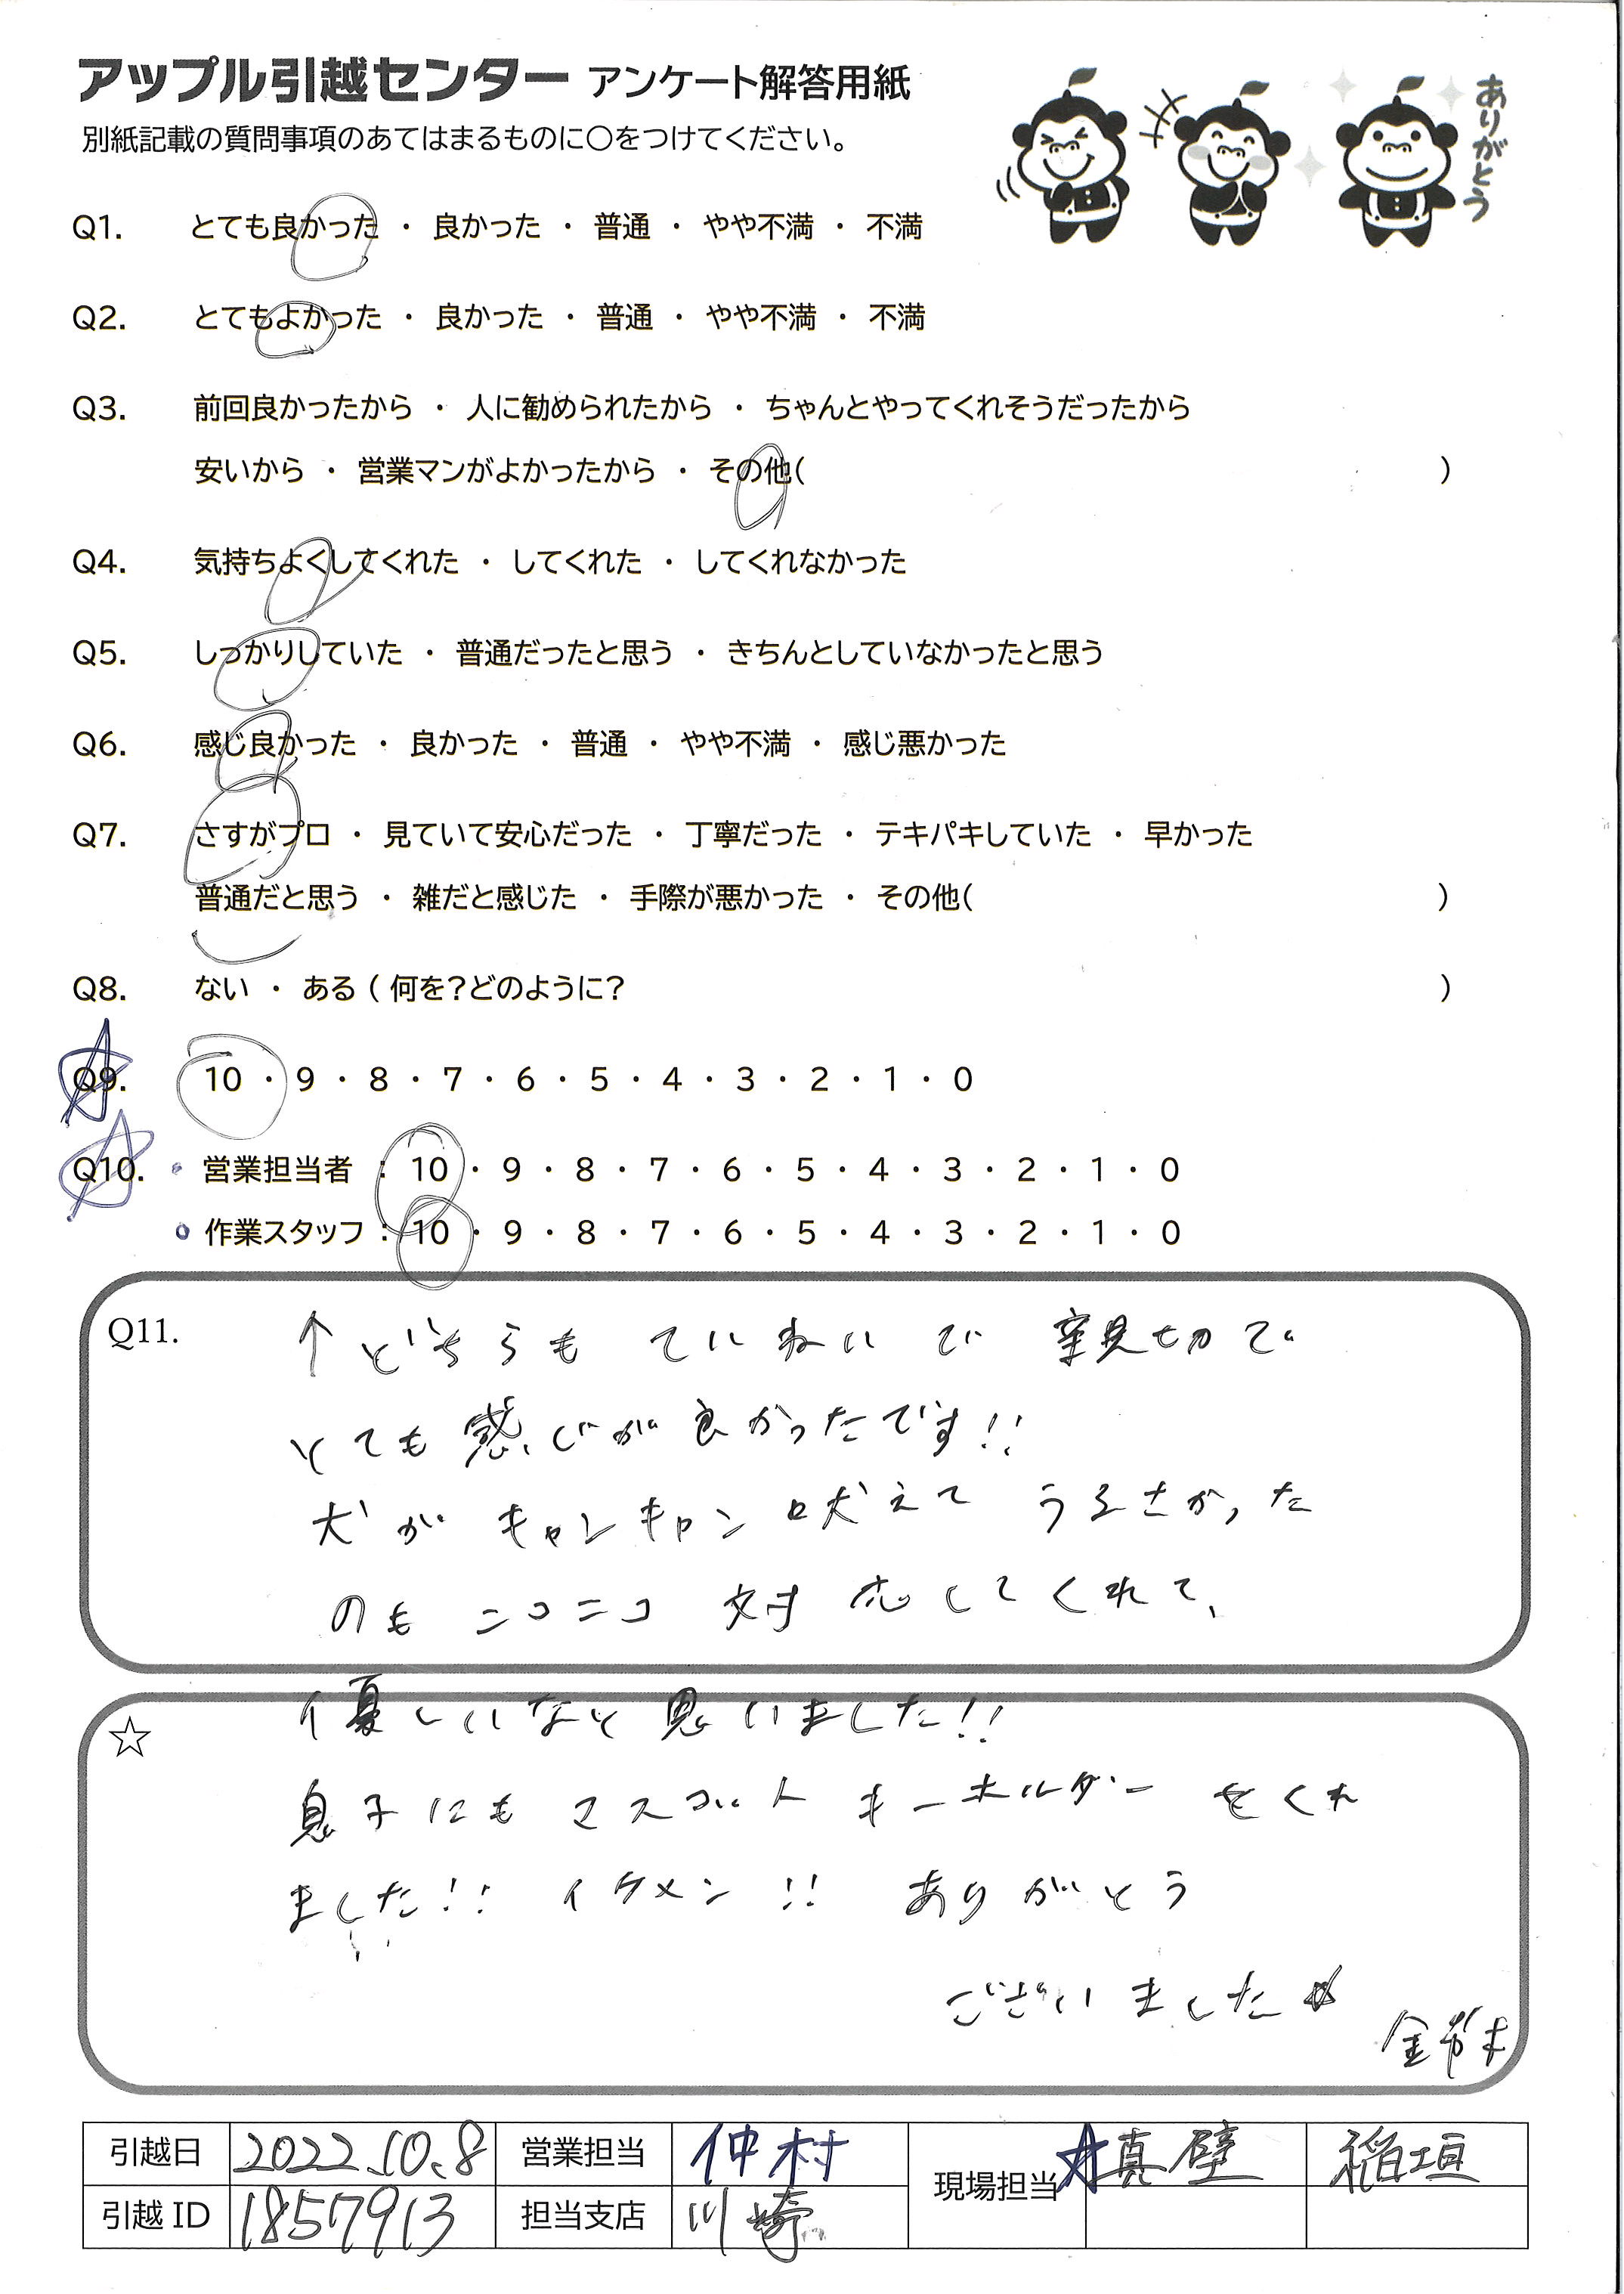 アップル引越センター アンケート解答用紙
別紙記載の質問事項のあてはまるものに〇をつけてください。
ありがとう
Q1. とても良かった ・ 良かった ・ 普通 ・ やや不満 ・ 不満
Q2. とてもよかった ・ 良かった ・ 普通 ・ やや不満 ・ 不満
Q3. 前回良かったから ・ 人に勧められたから ・ ちゃんとやってくれそうだったから
安いから ・ 営業マンがよかったから ・ その他( )
Q4. 気持ちよくしてくれた ・ してくれた ・ してくれなかった
Q5. しっかりしていた ・ 普通だったと思う ・ きちんとしていなかったと思う
Q6. 感じ良かった ・ 良かった ・ 普通 ・ やや不満 ・ 感じ悪かった
Q7. さすがプロ ・ 見ていて安心だった ・ 丁寧だった ・ テキパキしていた ・ 早かった
普通だと思う ・ 雑だと感じた ・ 手際が悪かった ・ その他( )
Q8. ない ・ ある ( 何を?どのように? )
Q9. 10 ・ 9 ・ 8 ・ 7 ・ 6 ・ 5 ・ 4 ・ 3 ・ 2 ・ 1 ・ 0
Q10. 営業担当者 : 10 ・ 9 ・ 8 ・ 7 ・ 6 ・ 5 ・ 4 ・ 3 ・ 2 ・ 1 ・ 0
作業スタッフ : 10 ・ 9 ・ 8 ・ 7 ・ 6 ・ 5 ・ 4 ・ 3 ・ 2 ・ 1 ・ 0
Q11. ↑どちらも ていねいで 親切で
とても感じが良かったです!!
犬が キャンキャン 吠えて うるさかった
のも ニコニコ 対応してくれて、
優しいなと思いました!!
☆
息子にも マスコット キーホルダー をくれ
ました!! イケメン!! ありがとう
ございました☆
鈴木
引越日 2022.10.8 営業担当 仲村 現場担当 ☆真壁 稲垣
引越 ID 1857913 担当支店 川崎